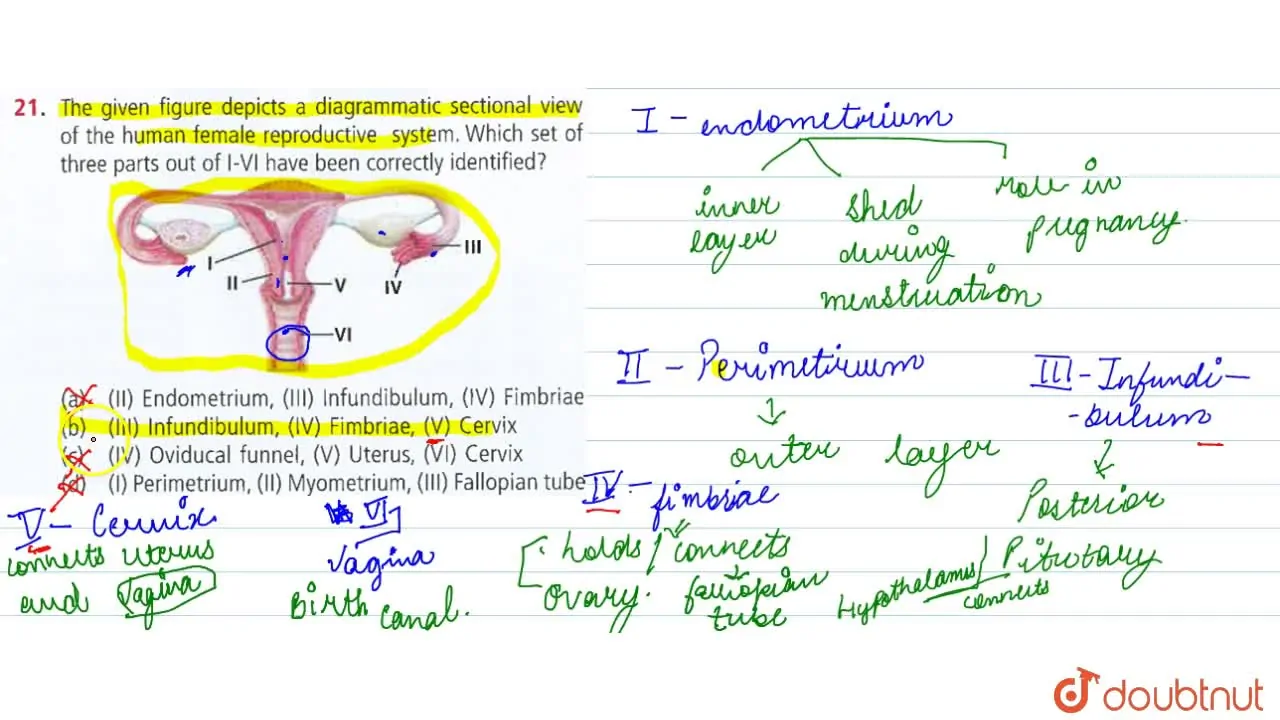 21. The given figure depicts a diagrammatic sectional view
of the human female reproductive system. Which set of
three parts out of I-VI have been correctly identified?
I
II
III
IV
V
VI
(a) (II) Endometrium, (III) Infundibulum, (IV) Fimbriae
(b) (III) Infundibulum, (IV) Fimbriae, (V) Cervix
(c) (IV) Oviducal funnel, (V) Uterus, (VI) Cervix
(d) (I) Perimetrium, (II) Myometrium, (III) Fallopian tube
I - endometrium
inner
layer
shed
during
menstruation
role in
pregnancy.
II - Perimetrium
outer layer
III - Infundi-
-bulum
Posterior
Pitutary
Hypothelamus
connects
IV - fimbriae
holds / connects
ovary.
fallopian
tube
V - Cervix
connects uterus
and vagina
VI
Vagina
Birth canal.
doubtnut